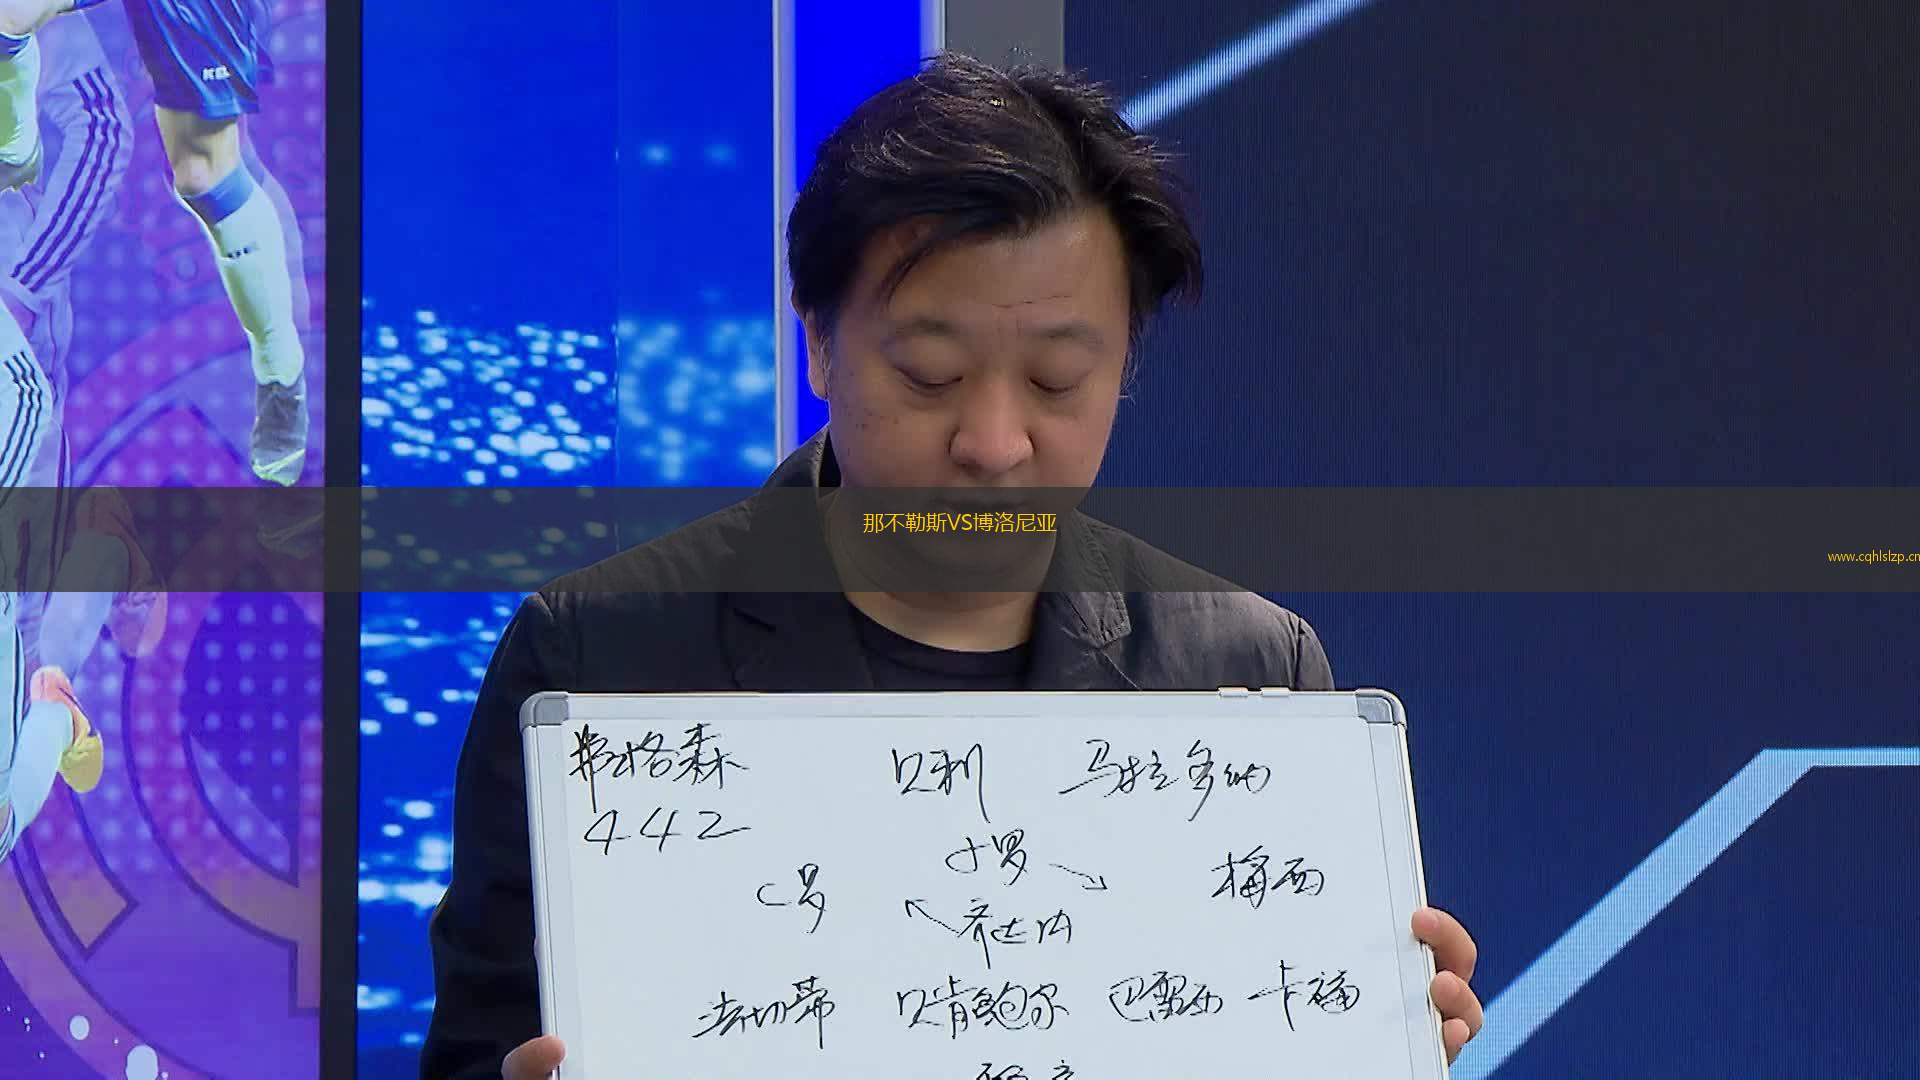 那不勒斯VS博洛尼亚
www.cqhlslzp.cn
弗格森 贝利 马拉多纳
442
小罗
C罗 梅西
齐达内
法切蒂 贝肯鲍尔 巴雷西 卡福